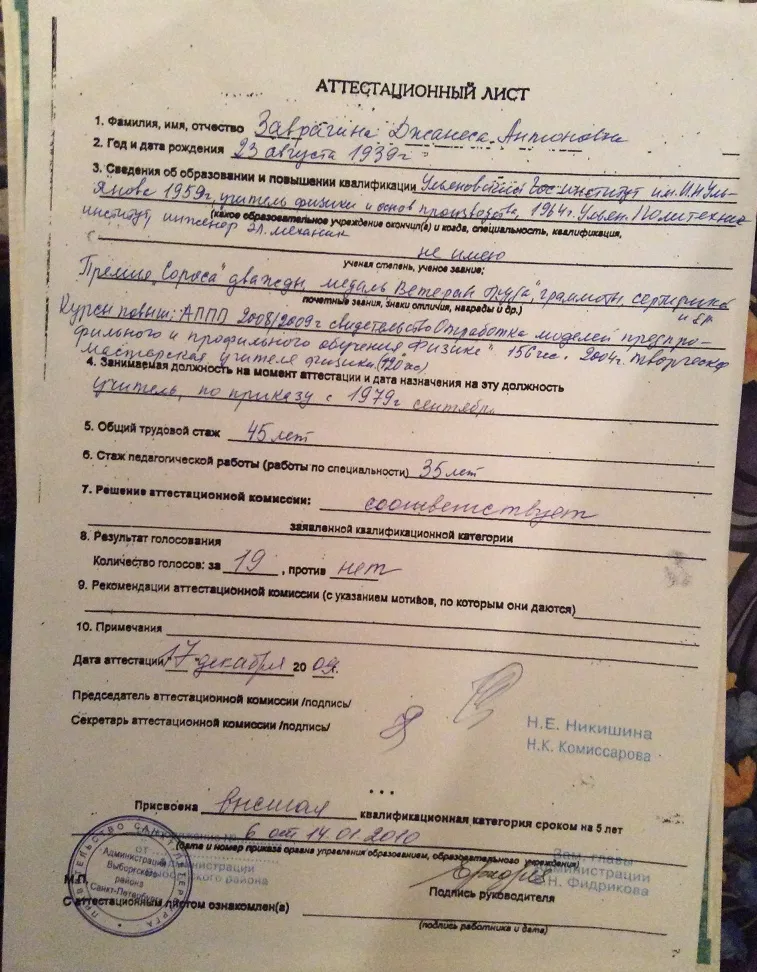 АТТЕСТАЦИОННЫЙ ЛИСТ
1. Фамилия, имя, отчество Заврагина Джанеса Антоновна
2. Год и дата рождения 23 августа 1939г
3. Сведения об образовании и повышении квалификации Ульяновский Гос. институт им. И.Н. Уль-
янова 1959г, учитель физики и основ производства, 1964г. Ульян. Политехнич
(какое образовательное учреждение окончил(а) и когда, специальность, квалификация,
институт, инженер эл. механик
не имею
ученая степень, ученое звание;
Премия "Сороса" дважды медаль Ветеран труда, грамоты сертифика
почетные звания, знаки отличия, награды и др.)
и др.
Курсы повыш: АППО 2008/2009г свидетельство Отработка моделей предпро-
фильного и профильного обучения Физике" 156 час. 2004г. Творческа
мастерская учителя физики (120 час)
4. Занимаемая должность на момент аттестации и дата назначения на эту должность
учитель, по приказу с 1979г сентября
5. Общий трудовой стаж 45 лет
6. Стаж педагогической работы (работы по специальности) 35 лет
7. Решение аттестационной комиссии: соответствует
заявленной квалификационной категории
8. Результат голосования
Количество голосов: за 19, против нет
9. Рекомендации аттестационной комиссии (с указанием мотивов, по которым они даются)
10. Примечания
Дата аттестации 17 декабря 20 09г.
Председатель аттестационной комиссии /подпись/
Н.Е. Никишина
Секретарь аттестационной комиссии /подпись/
Н.К. Комиссарова
Присвоена высшая квалификационная категория сроком на 5 лет
№ 6 от 14.01.2010
(дата и номер приказа органа управления образованием, образовательного учреждения)
от администрации
района
Зам. главы
администрации
Н. Фидрикова
ПРАВИТЕЛЬСТВО САНКТ-ПЕТЕРБУРГА
Администрация
Выборгского
района
Санкт-Петербурга
М.П.
Подпись руководителя
С аттестационным листом ознакомлен(а)
(подпись работника и дата)